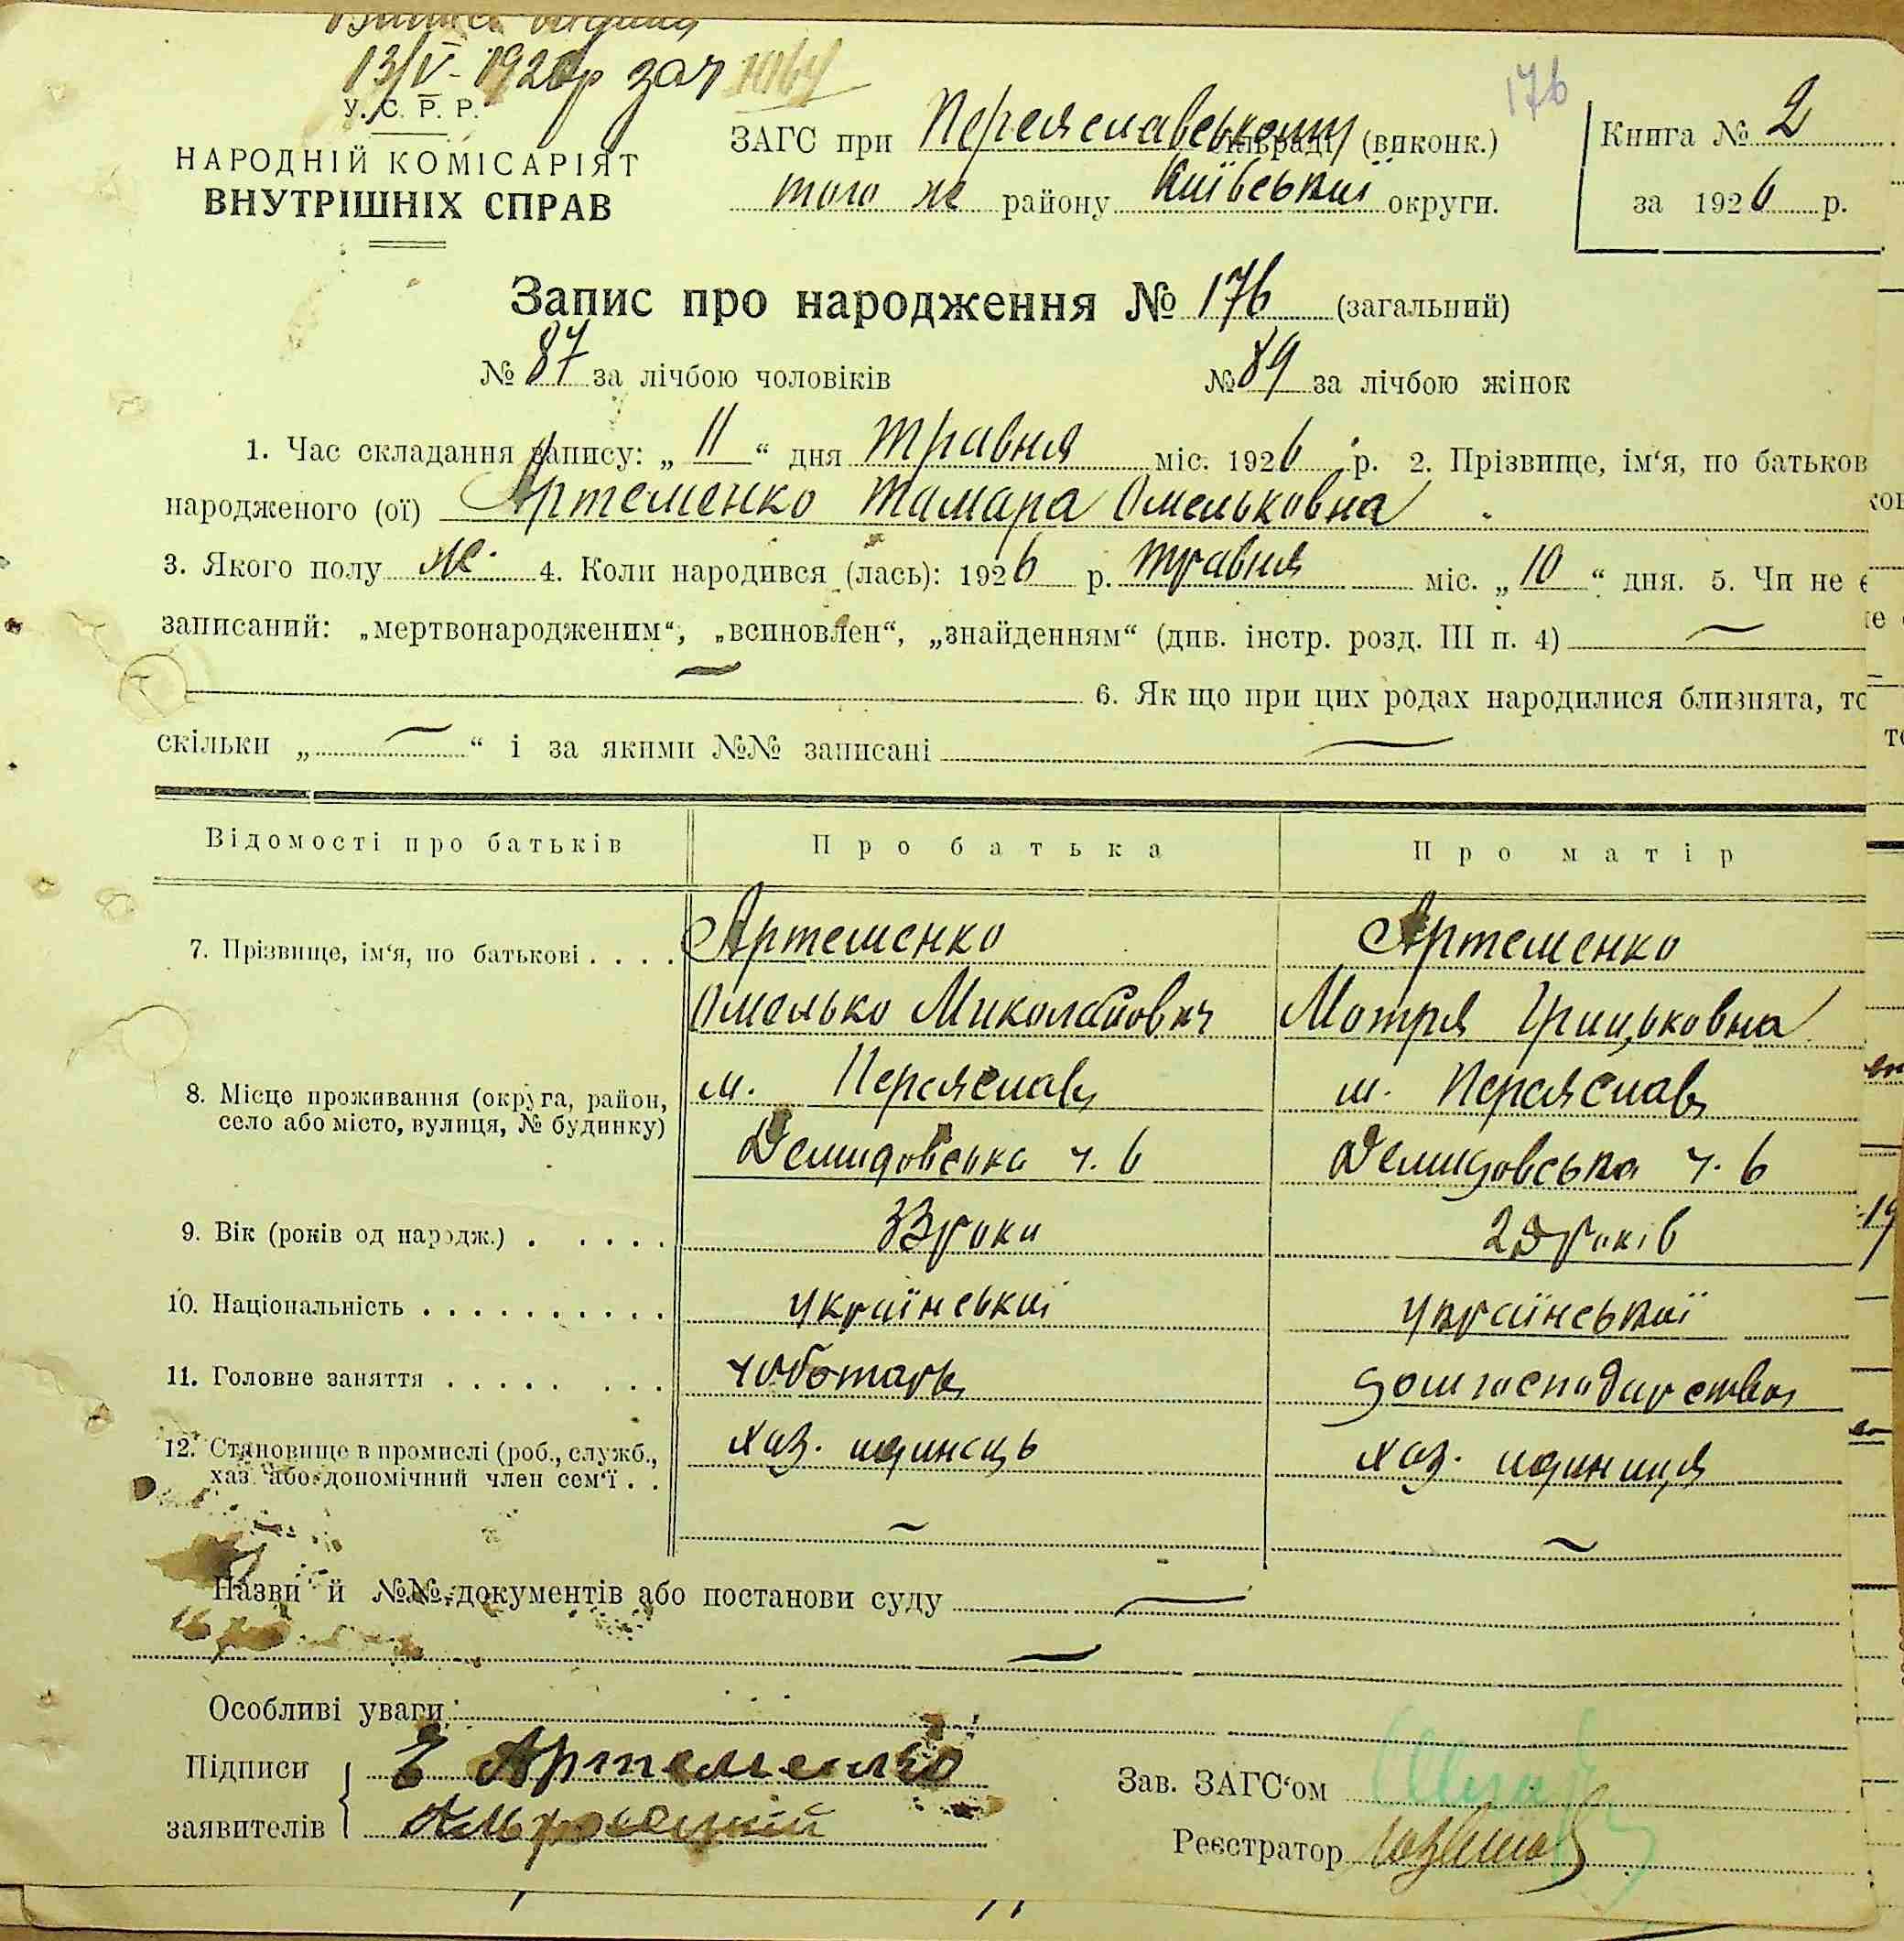 13/V - 192 р за ч 1064
176
У. С. Р. Р.
НАРОДНІЙ КОМІСАРІЯТ
ВНУТРІШНІХ СПРАВ
ЗАГС при Переяславському (виконк.)
того же району Київської округи.
Книга № 2
за 1926 р.
Запис про народження № 176 (загальний)
№ 87 за лічбою чоловіків № 89 за лічбою жінок
1. Час складання запису: „ 11 “ дня травня міс. 1926 р. 2. Прізвище, ім‘я, по батьков
народженого (ої) Артеменко Тамара Омельковна
3. Якого полу ж. 4. Коли народився (лась): 1926 р. травня міс. „ 10 “ дня. 5. Чи не є
записаний: „мертвонародженим“, „всиновлен“, „знайденням“ (див. інстр. розд. III п. 4)
6. Як що при цих родах народилися близнята, то
скільки „ “ і за якими №№ записані
Відомості про батьків Про батька Про матір
7. Прізвище, ім‘я, по батькові . . . . Артеменко Артеменко
Омелько Миколайович Мотря Грицьковна
8. Місце проживання (округа, район, м. Переяслав м. Переяслав
село або місто, вулиця, № будинку)
Демидовська ч. 6 Демидовська ч. 6
9. Вік (років од народж.) . . . . . 33 роки 2 років
10. Національність . . . . . . . . . . української української
11. Головне заняття . . . . . . . . чоботарь домгосподарство
12. Становище в промислі (роб., служб., хаз. одинець хаз. одиниця
хаз. або допомічний член сем‘ї . .
Назви й №№ документів або постанови суду
Особливі уваги:
Підписи Е Артеменко
заявителів
Зав. ЗАГС‘ом
Реєстратор